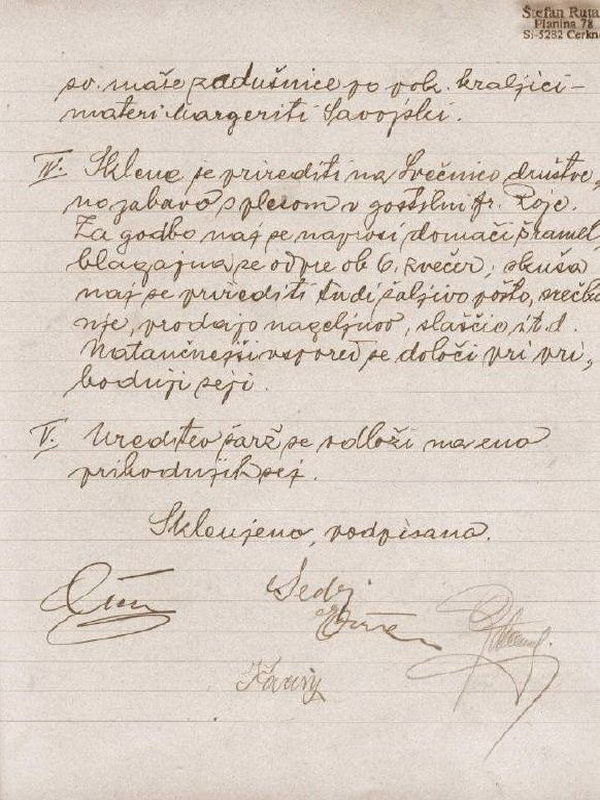 Štefan Ruta
Planina 78
SI-5282 Cerkno
sv. maše zadušnice po pok. kraljici-
materi Margeriti Savojski.
IV. Sklene se prirediti na Svečnico društve,
no zabavo s plesom v gostilni fr. Roje.
Za godbo naj se naprosi domači šramel,
blagajna se odpre ob 6. zvečer, skuša
naj se prirediti tudi šaljivo pošto, srečka
nje, prodajo nageljnov, slaščic i.t.d.
Natančnejši vspored se določi pri pri,
hodnji seji.
V. Ureditev šarž se odloži na eno
prihodnjih sej.
Sklenjeno, podpisana.
Sedej